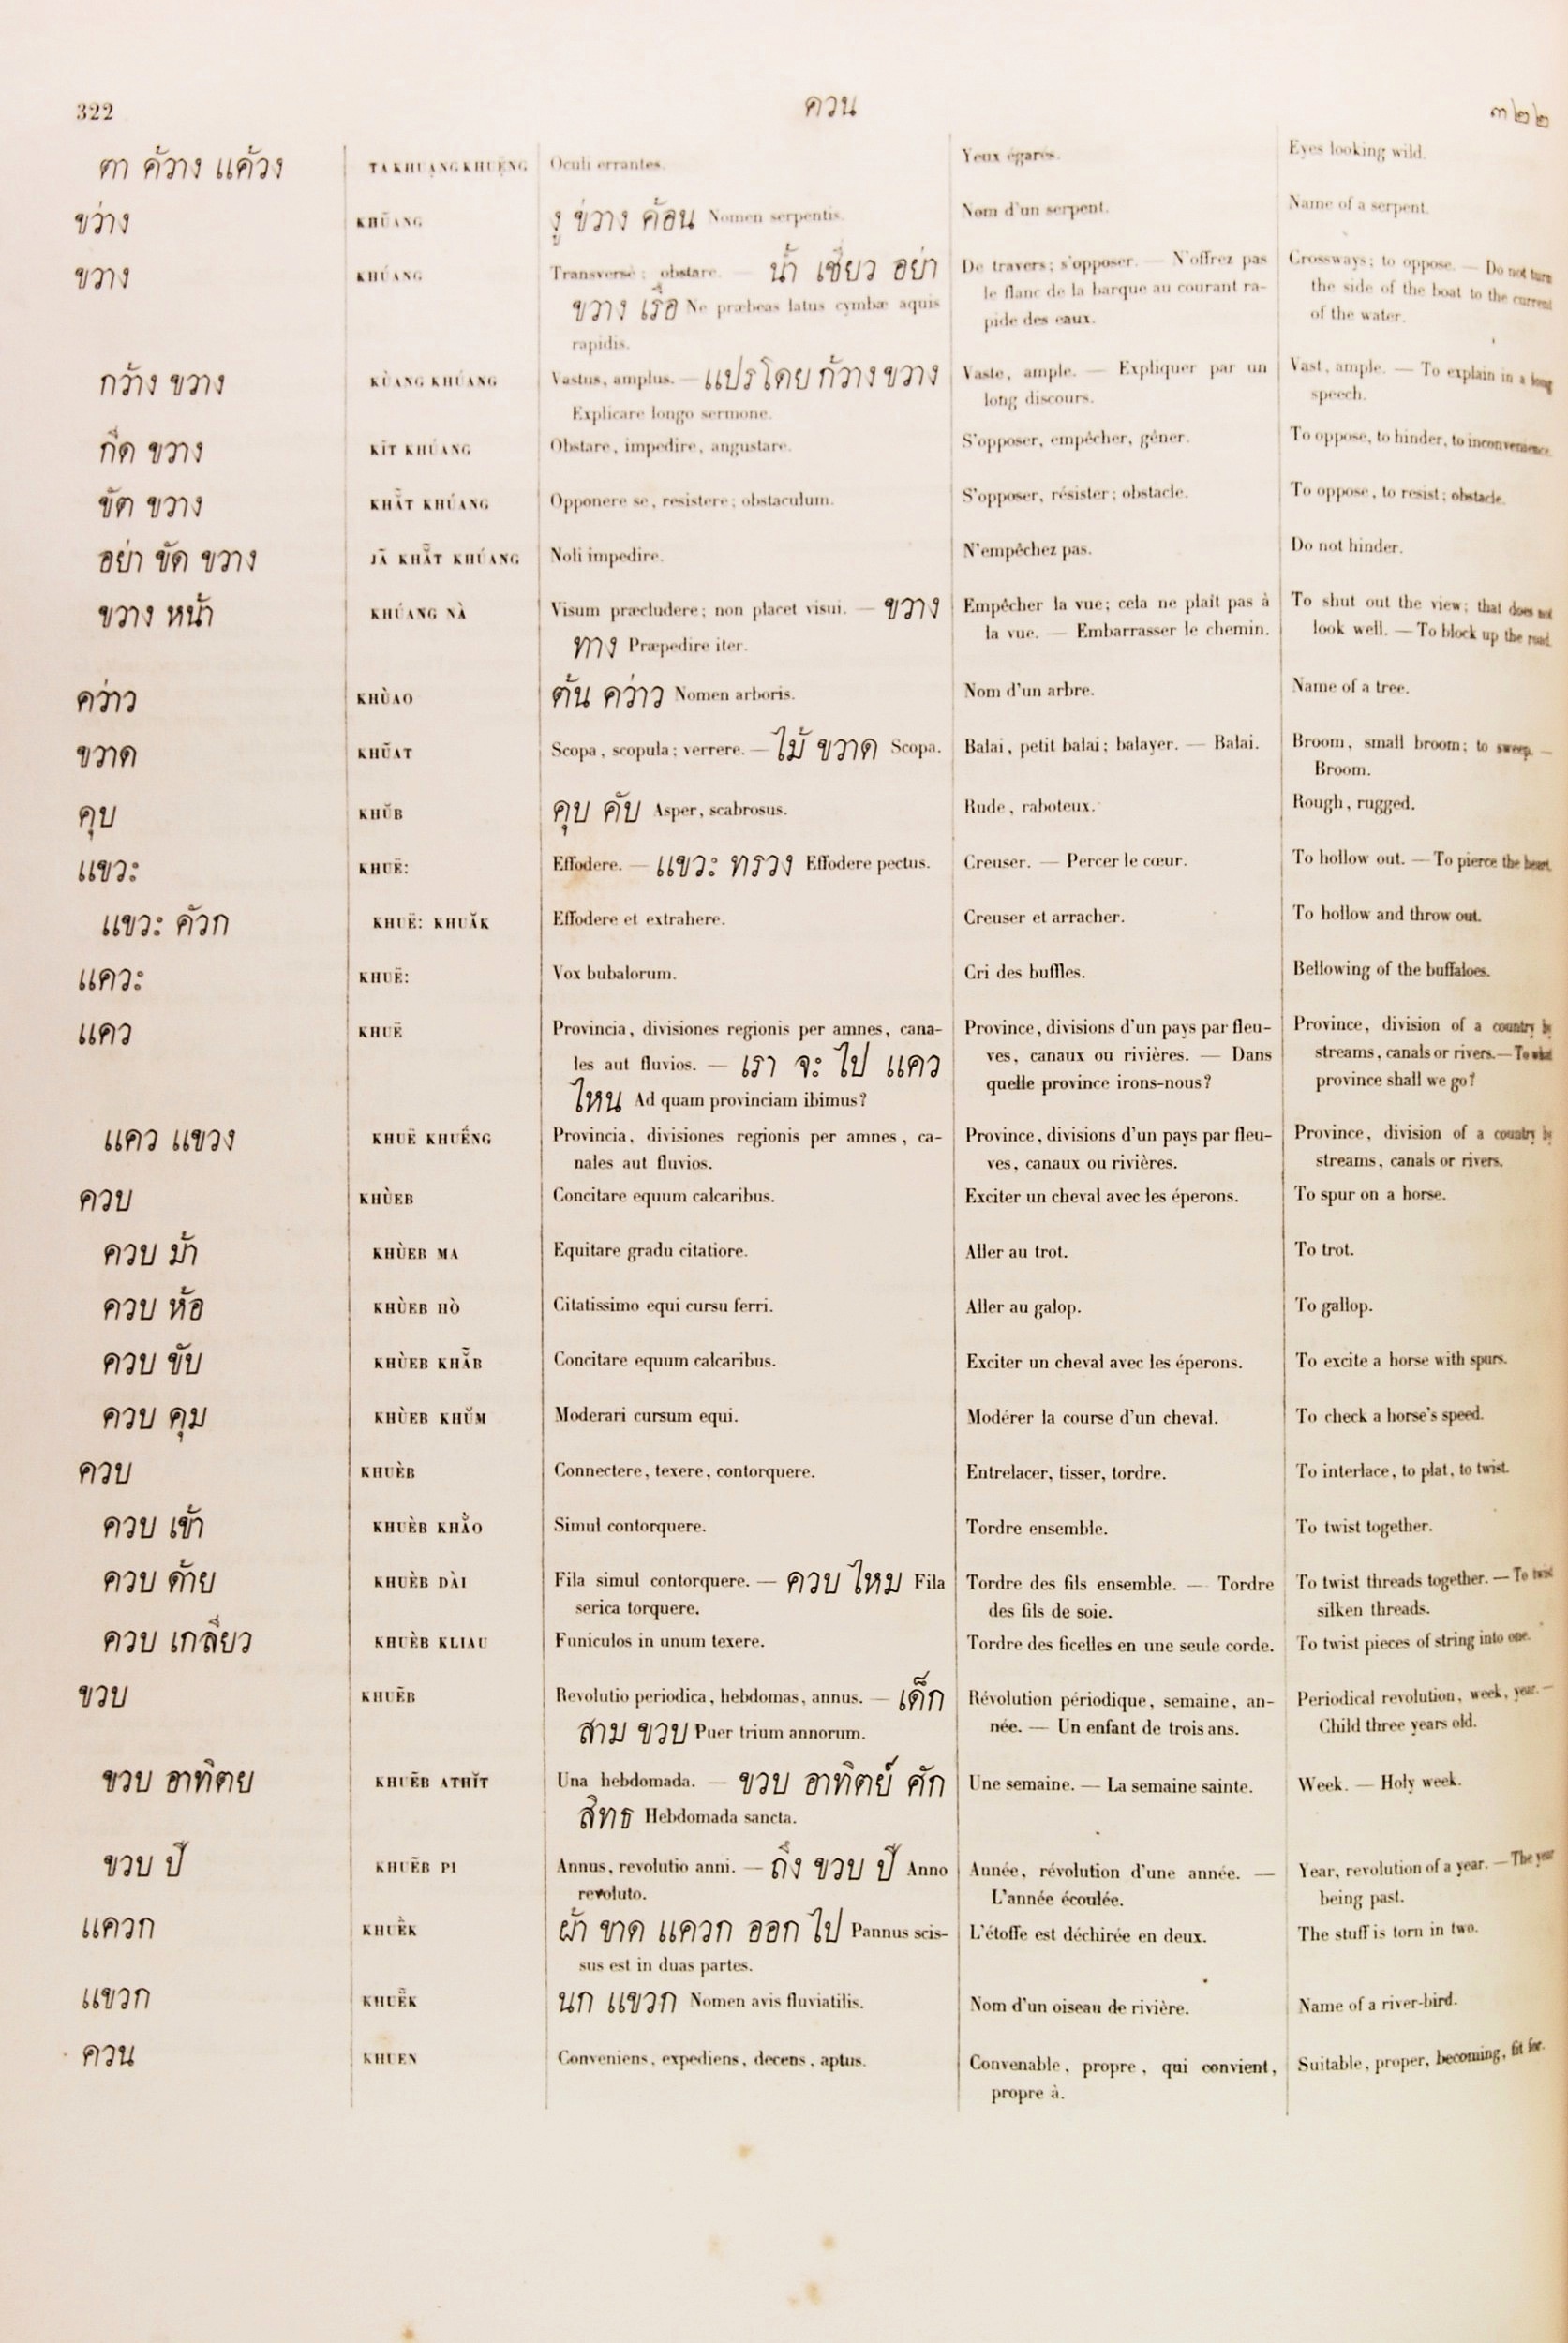 322 ควน ๓๒๒
ตา คว้าง แคว้ง TA KHUANG KHUËNG Oculi errantes. Yeux égarés. Eyes looking wild.
ขว่าง KHŨANG งู ขว่าง ค้อน Nomen serpentis. Nom d'un serpent. Name of a serpent.
ขวาง KHÚANG Transverse; obstare. — น้ำ เชี่ยว อย่า De travers; s'opposer. — N'offrez pas Crossways; to oppose. — Do not turn
ขวาง เรือ Ne præbeas latus cymbæ aquis le flanc de la barque au courant ra- the side of the boat to the current
rapidis. pide des eaux. of the water.
กว้าง ขวาง KÙANG KHÚANG Vastus, amplus. — แปรโดย กว้าง ขวาง Vaste, ample. — Expliquer par un Vast, ample. — To explain in a long
Explicare longo sermone. long discours. speech.
กีด ขวาง KĪT KHÚANG Obstare, impedire, angustare. S'opposer, empêcher, gêner. To oppose, to hinder, to inconvenience.
ขัต ขวาง KHẮT KHÚANG Opponere se, resistere; obstaculum. S'opposer, résister; obstacle. To oppose, to resist; obstacle.
อย่า ขัด ขวาง JÃ KHẮT KHÚANG Noli impedire. N'empêchez pas. Do not hinder.
ขวาง หน้า KHÚANG NÀ Visum præcludere; non placet visui. — ขวาง Empêcher la vue; cela ne plaît pas à To shut out the view; that does not
ทาง Præpedire iter. la vue. — Embarrasser le chemin. look well. — To block up the road.
คว่าว KHÙAO ต้น คว่าว Nomen arboris. Nom d'un arbre. Name of a tree.
ขวาด KHŨAT Scopa, scopula; verrere. — ไม้ ขวาด Scopa. Balai, petit balai; balayer. — Balai. Broom, small broom; to sweep. —
Broom.
คุบ KHŬB คุบ คับ Asper, scabrosus. Rude, raboteux. Rough, rugged.
แขวะ KHUË: Effodere. — แขวะ ทรวง Effodere pectus. Creuser. — Percer le cœur. To hollow out. — To pierce the heart.
แขวะ ควัก KHUË: KHUĂK Effodere et extrahere. Creuser et arracher. To hollow and throw out.
แควะ KHUË: Vox bubalorum. Cri des buffles. Bellowing of the buffaloes.
แคว KHUË Provincia, divisiones regionis per amnes, cana- Province, divisions d'un pays par fleu- Province, division of a country by
les aut fluvios. — เรา จะ ไป แคว ves, canaux ou rivières. — Dans streams, canals or rivers. — To what
ไหน Ad quam provinciam ibimus? quelle province irons-nous? province shall we go?
แคว แขวง KHUË KHUËNG Provincia, divisiones regionis per amnes, ca- Province, divisions d'un pays par fleu- Province, division of a country by
nales aut fluvios. ves, canaux ou rivières. streams, canals or rivers.
ควบ KHÙEB Concitare equum calcaribus. Exciter un cheval avec les éperons. To spur on a horse.
ควบ ม้า KHÙEB MA Equitare gradu citatiore. Aller au trot. To trot.
ควบ ห้อ KHÙEB HÒ Citatissimo equi cursu ferri. Aller au galop. To gallop.
ควบ ขับ KHÙEB KHẮB Concitare equum calcaribus. Exciter un cheval avec les éperons. To excite a horse with spurs.
ควบ คุม KHÙEB KHŬM Moderari cursum equi. Modérer la course d'un cheval. To check a horse's speed.
ควบ KHUÈB Connectere, texere, contorquere. Entrelacer, tisser, tordre. To interlace, to plat, to twist.
ควบ เข้า KHUÈB KHẢO Simul contorquere. Tordre ensemble. To twist together.
ควบ ด้าย KHUÈB DÀI Fila simul contorquere. — ควบ ไหม Fila Tordre des fils ensemble. — Tordre To twist threads together. — To twist
serica torquere. des fils de soie. silken threads.
ควบ เกลียว KHUÈB KLIAU Funiculos in unum texere. Tordre des ficelles en une seule corde. To twist pieces of string into one.
ขวบ KHUĒB Revolutio periodica, hebdomas, annus. — เด็ก Révolution périodique, semaine, an- Periodical revolution, week, year. —
สาม ขวบ Puer trium annorum. née. — Un enfant de trois ans. Child three years old.
ขวบ อาทิตย KHUĒB ATHĬT Una hebdomada. — ขวบ อาทิตย์ ศัก Une semaine. — La semaine sainte. Week. — Holy week.
สิทธ Hebdomada sancta.
ขวบ ปี KHUĒB PI Annus, revolutio anni. — ถึง ขวบ ปี Anno Année, révolution d'une année. — Year, revolution of a year. — The year
revoluto. L'année écoulée. being past.
แควก KHUËK ผ้า ขาด แควก ออก ไป Pannus scis- L'étoffe est déchirée en deux. The stuff is torn in two.
sus est in duas partes.
แขวก KHUËK นก แขวก Nomen avis fluviatilis. Nom d'un oiseau de rivière. Name of a river-bird.
ควน KHUEN Conveniens, expediens, decens, aptus. Convenable, propre, qui convient, Suitable, proper, becoming, fit for.
propre à.